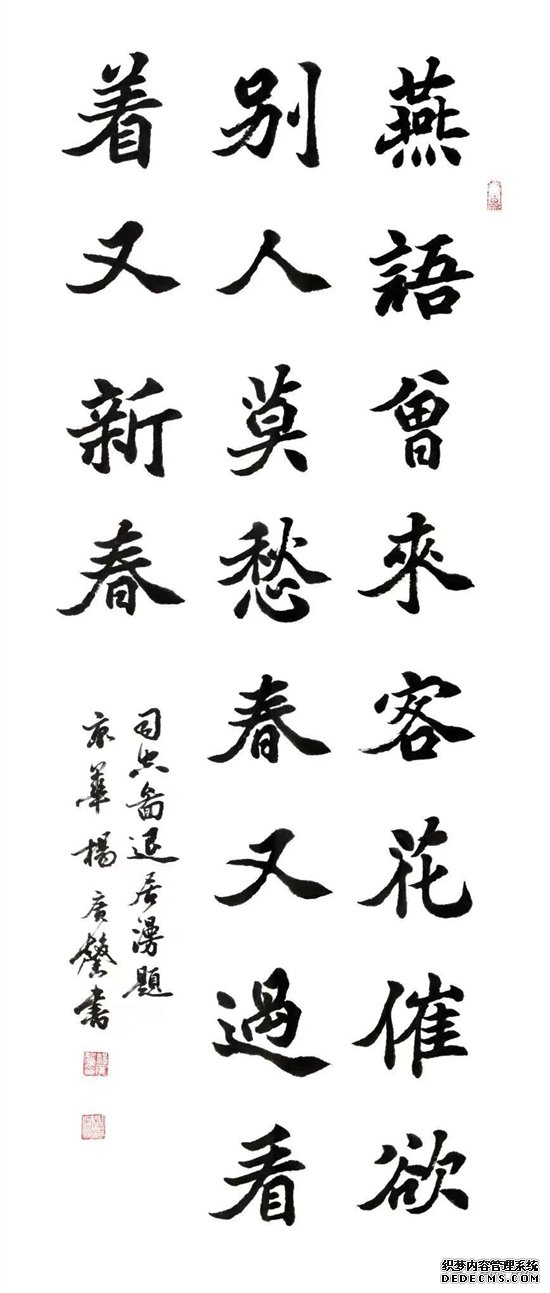 燕語曾來客花催欲
別人莫愁春又過看
着又新春
司空圖退居漫題
京華楊廣馨書
织梦内容管理系统
DEDECMS.COM